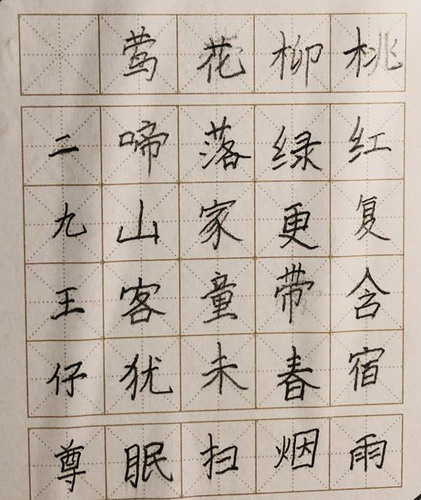 桃红复含宿雨
柳绿更带春烟
花落家童未扫
莺啼山客犹眠
二九王仔尊